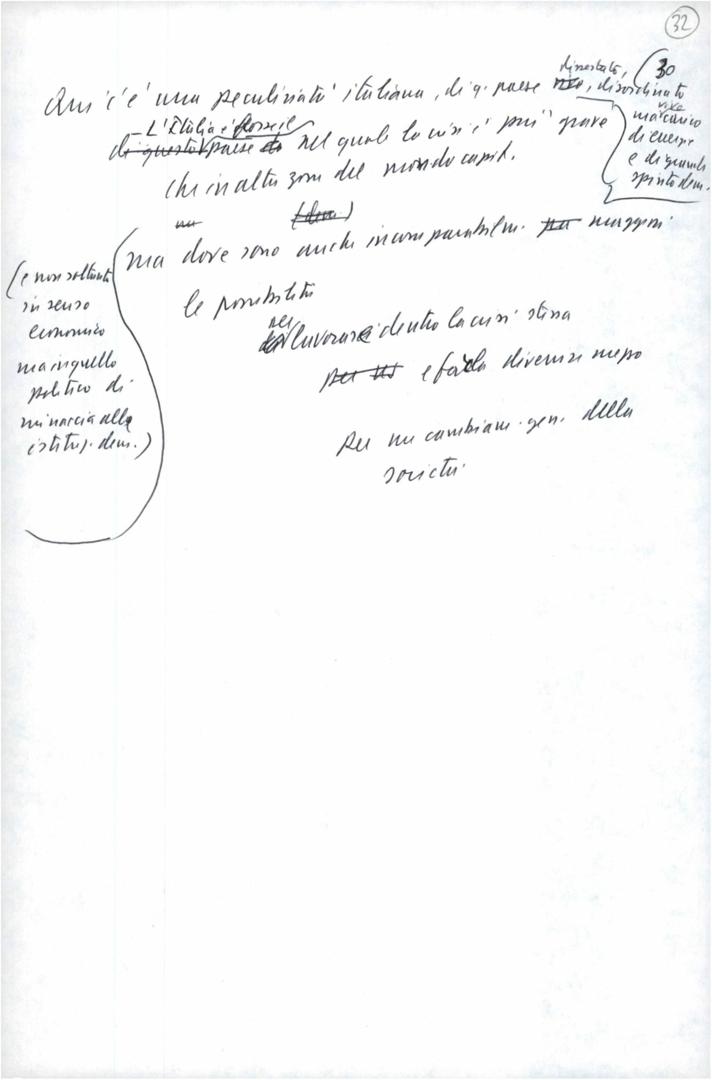 32
30
Qui c'è una peculiarità italiana, di q. paese dissestato, disordinato
ma carico
vive
di energie
e di grande
spinta dem.
- L'Italia è forse il
di questo paese nel quale la crisi è più grave
che in altre zone del mondo capit.
ma dove sono anche incomparabilm. maggiori
le possibilità
(e non soltanto
in senso
economico
ma in quello
politico di
minaccia alle
istituz. dem.)
per lavorare dentro la crisi stessa
e farla divenire mezzo
per un cambiam. gen. della
società